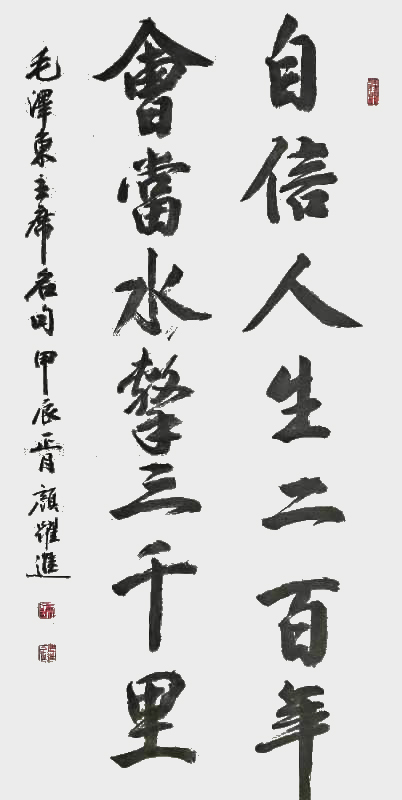 自信人生二百年
會當水擊三千里
毛澤東主席名句甲辰正月顏躍進